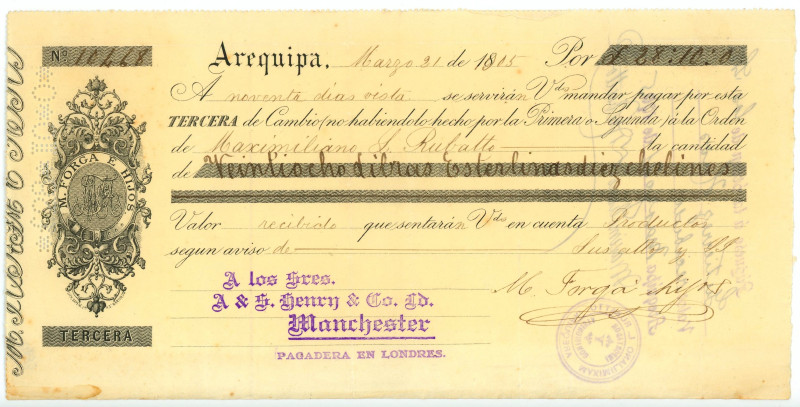 Nº 10468
Arequipa, Marzo 21 de 1895 Por £ 28:10:0
A noventa dias vista se servirán Vds mandar pagar por esta
TERCERA de Cambio (no habiendolo hecho por la Primera o Segunda) á la Orden
de Maximiliano S. Rubatto la cantidad
de Veintiocho Libras Esterlinas diez chelines
Valor recibido que sentarán Vds en cuenta Productos
segun aviso de Sus atto y SS
M. Forga é hijos
M. FORGA E HIJOS
TERCERA
A los Sres.
A & S. Henry & Co. Ld.
Manchester
PAGADERA EN LONDRES.